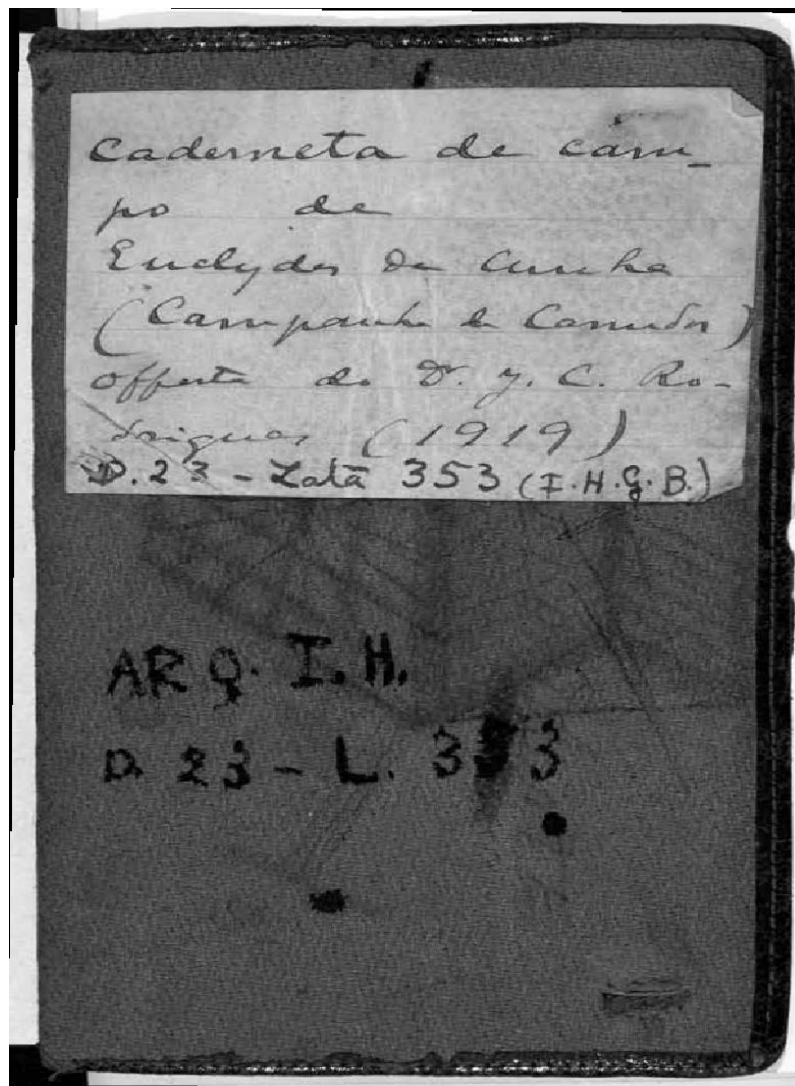 Caderneta de cam-
po de
Euclydes da Cunha
(Campanha de Canudos)
offerta do Dr. J. C. Ro-
drigues (1919)
D.23 - Lata 353 (I.H.G.B.)
ARQ. I.H.
D. 23 - L. 353